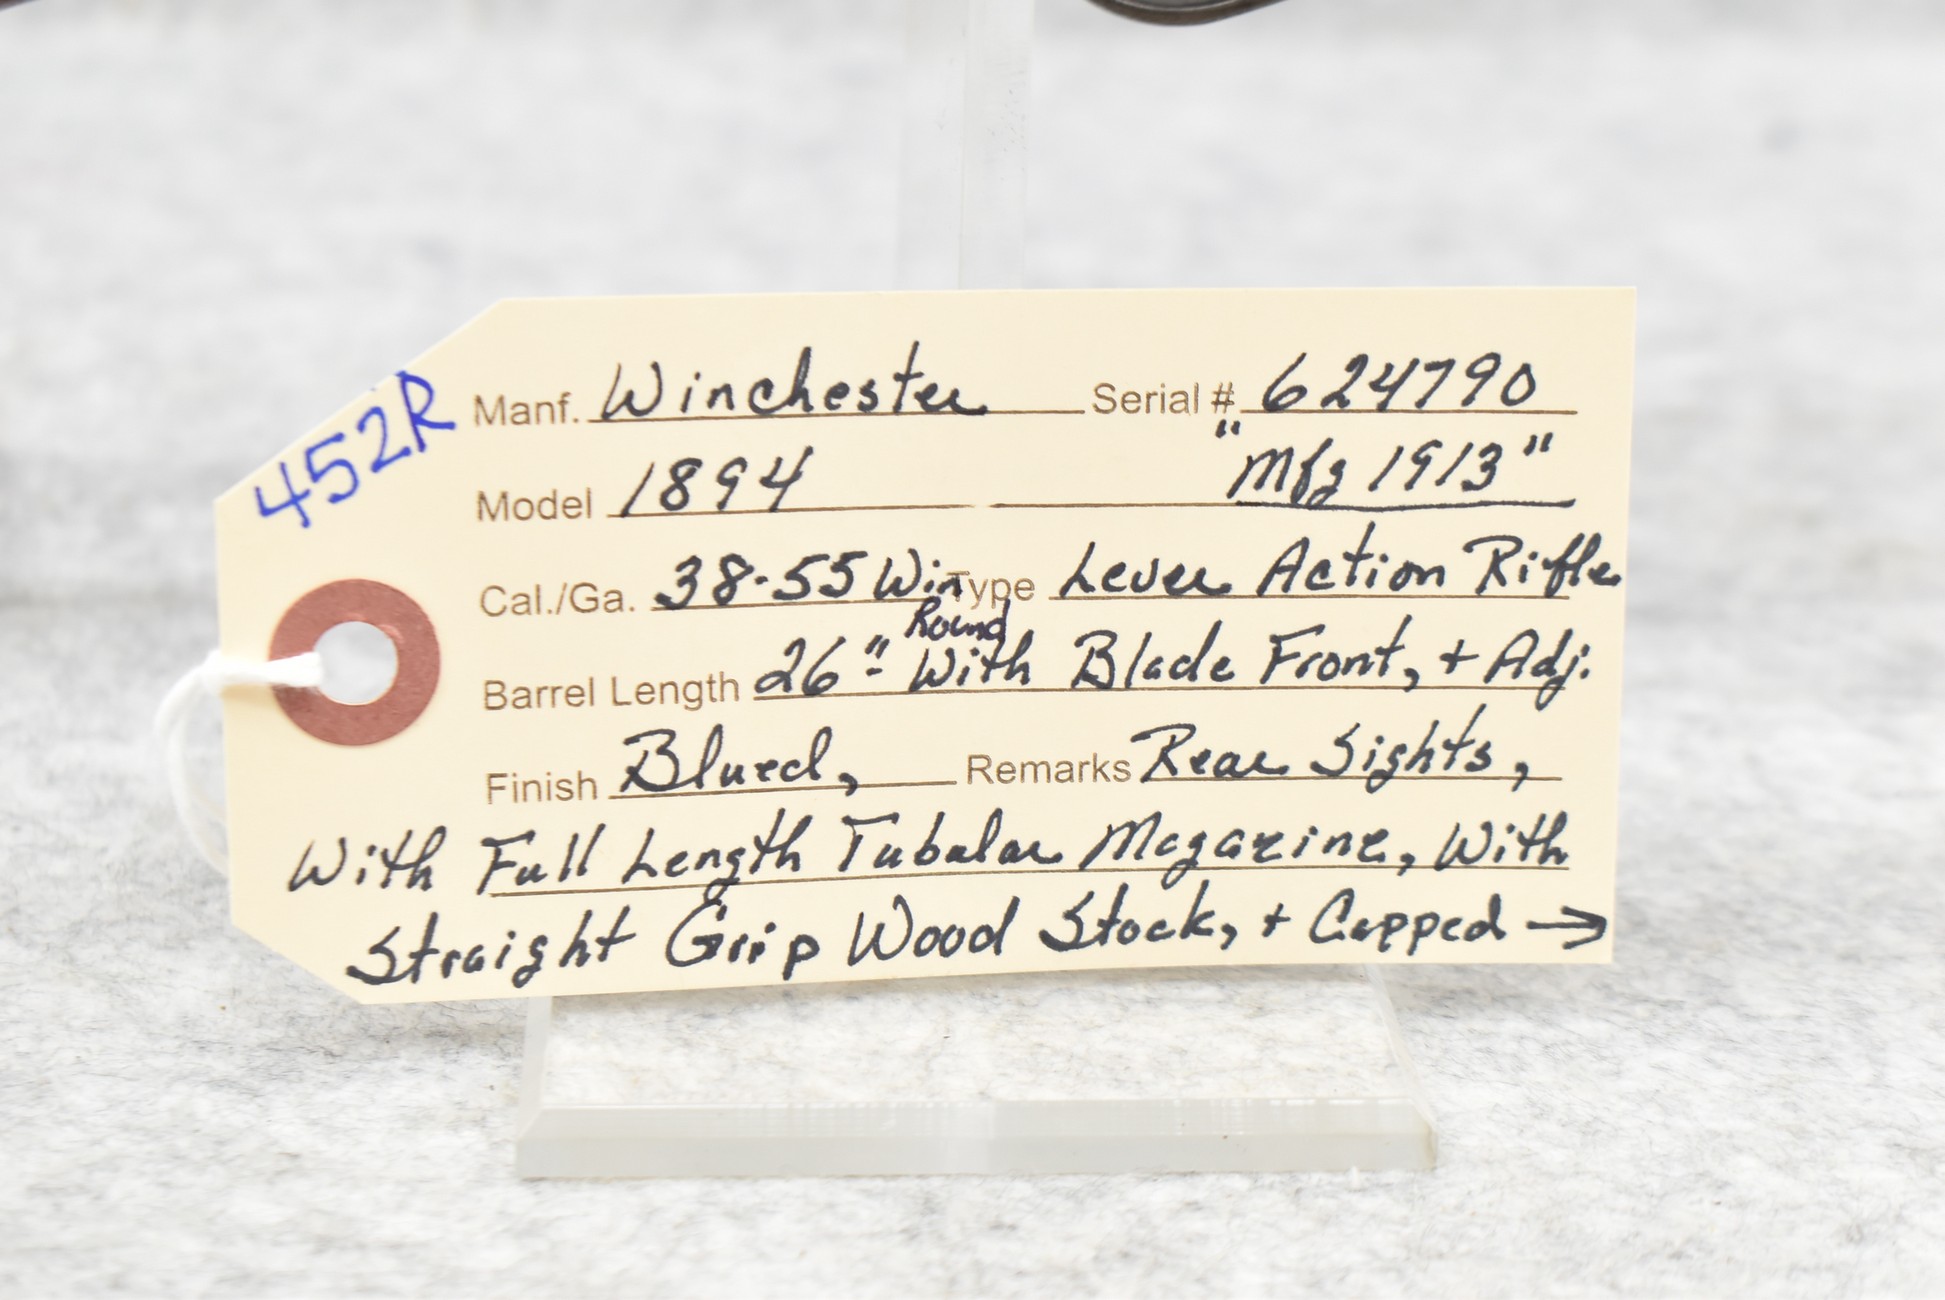 452R
Manf. Winchester Serial # 624790
Model 1894 "Mfg 1913"
Cal./Ga. 38-55 Win Type Lever Action Rifle
Round
Barrel Length 26" With Blade Front, + Adj.
Finish Blued, Remarks Rear Sights,
With Full Length Tubular Magazine, With
Straight Grip Wood Stock, + Capped →